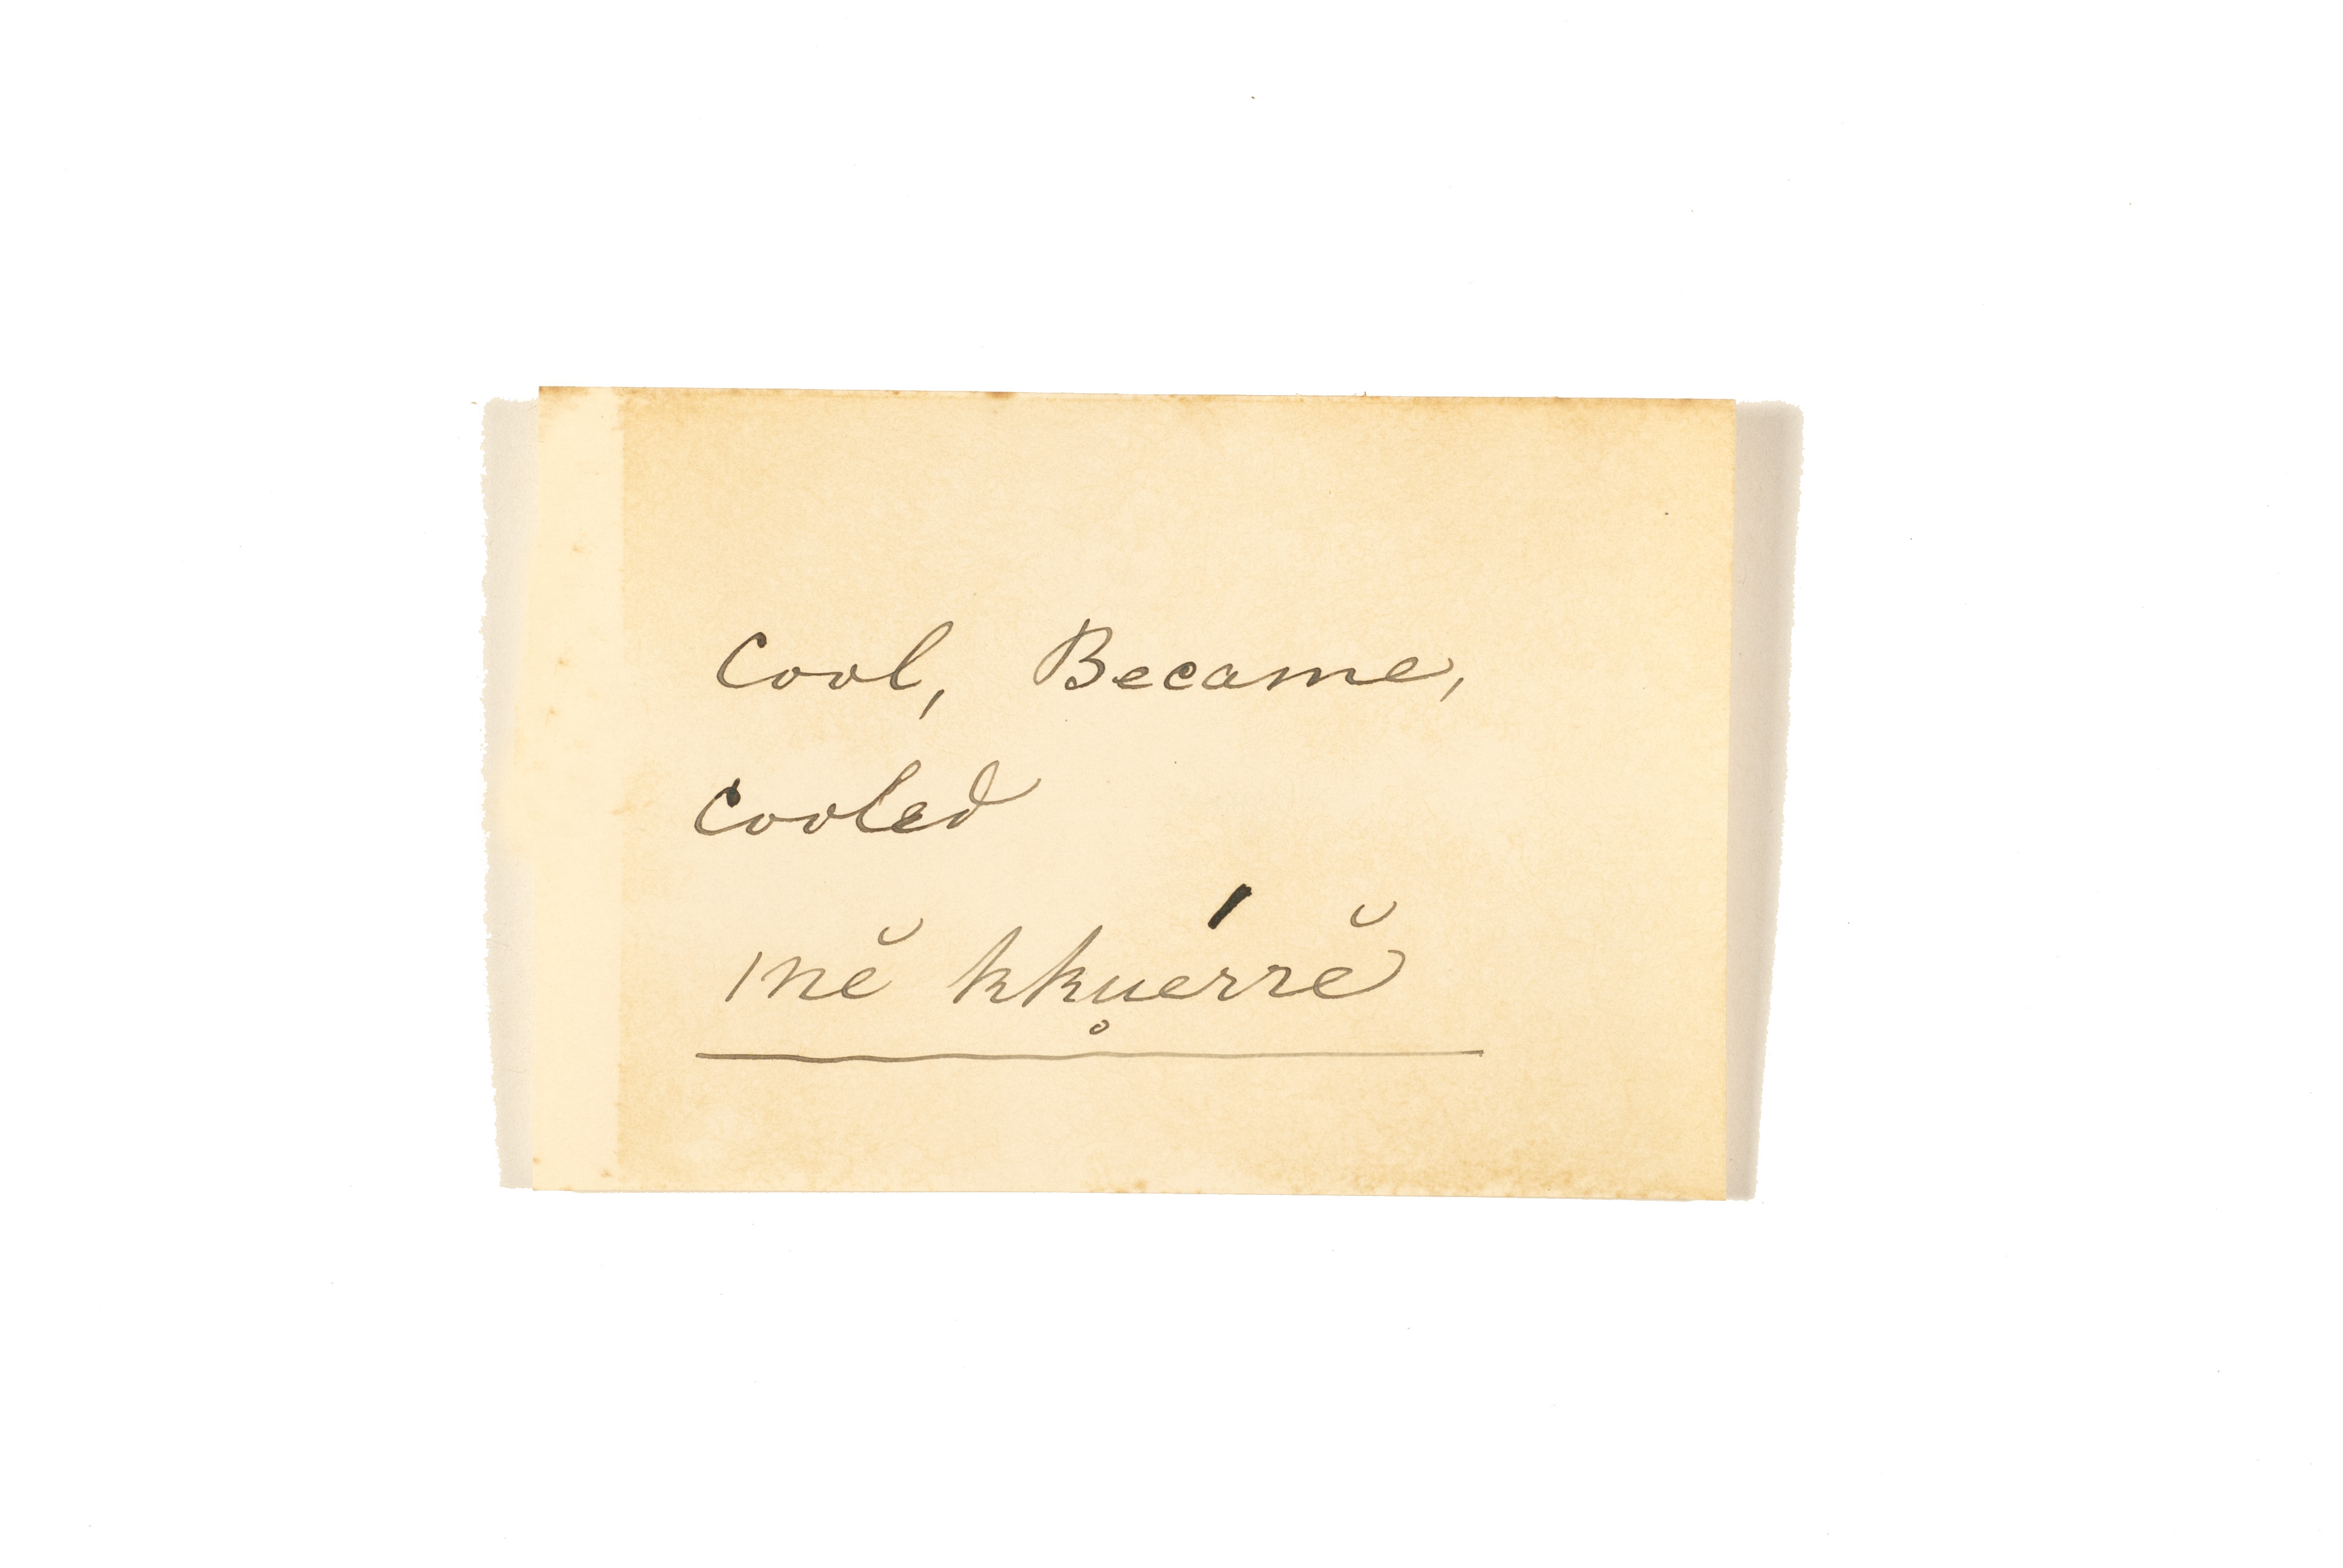 Cool, Became,
Cooled
mĕ kkụ̊érrĕ